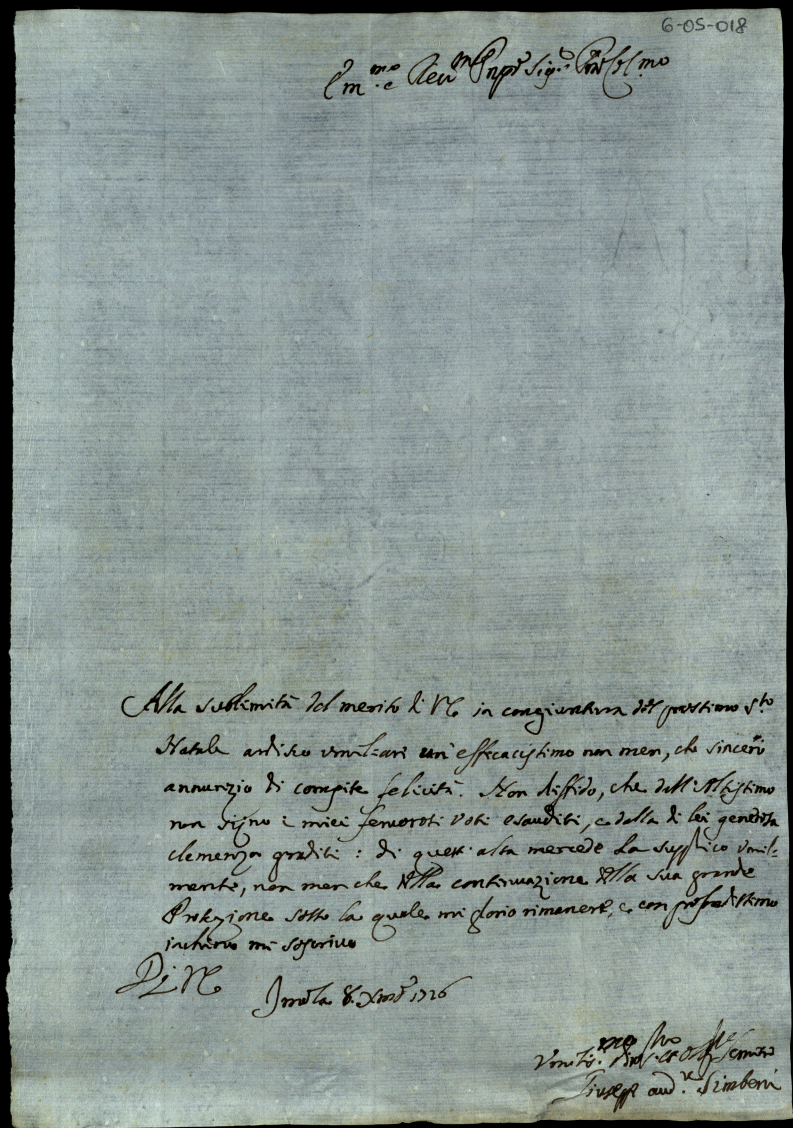 6-05-018
Em.mo e Rev.mo Sig.r Sig.r P̃rõn Col.mo
Alla sublimità del merito di VE in congiuntura del prossimo S.to
Natale ardisco umiliare un' efficacissimo non men, che sincero
annunzio di compite felicità. Non diffido, che dall'Altissimo
non siano i miei fervorosi voti esauditi, e dalla di lei generosa
clemenza graditi: di quest'alta mercede La supplico umil-
mente, non men che della continuazione della sua grande
Protezione sotto la quale mi glorio rimanere, e con profondissimo
inchino mi soscrivo
Di VE
Imola 8. Xmbr̃e 1726
Umilis.mo
Giuseppe And.a Zimberi